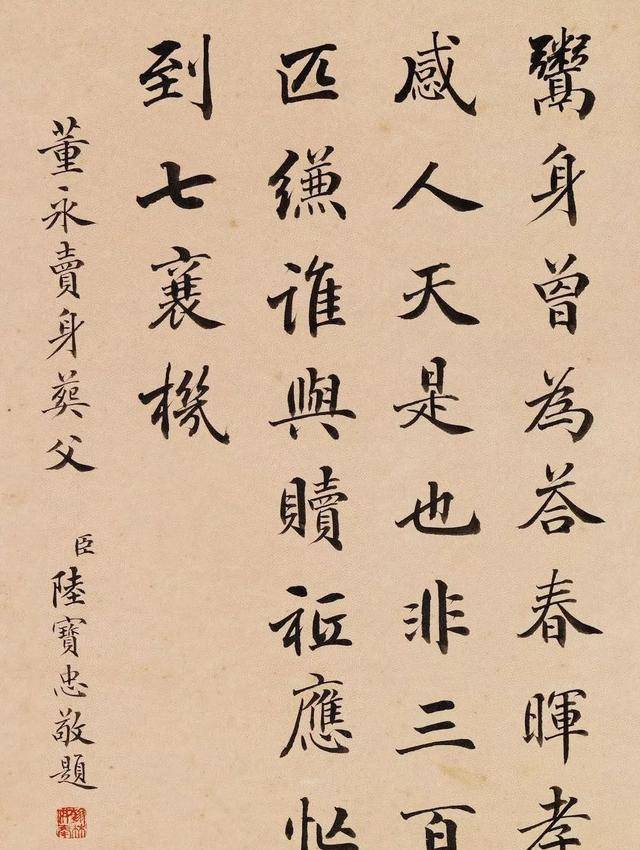 鬻身曾為荅春暉孝
感人天是也非三百
匹縑誰與贖祗應忙
到七襄機
董永賣身葬父
臣陸寶忠敬題